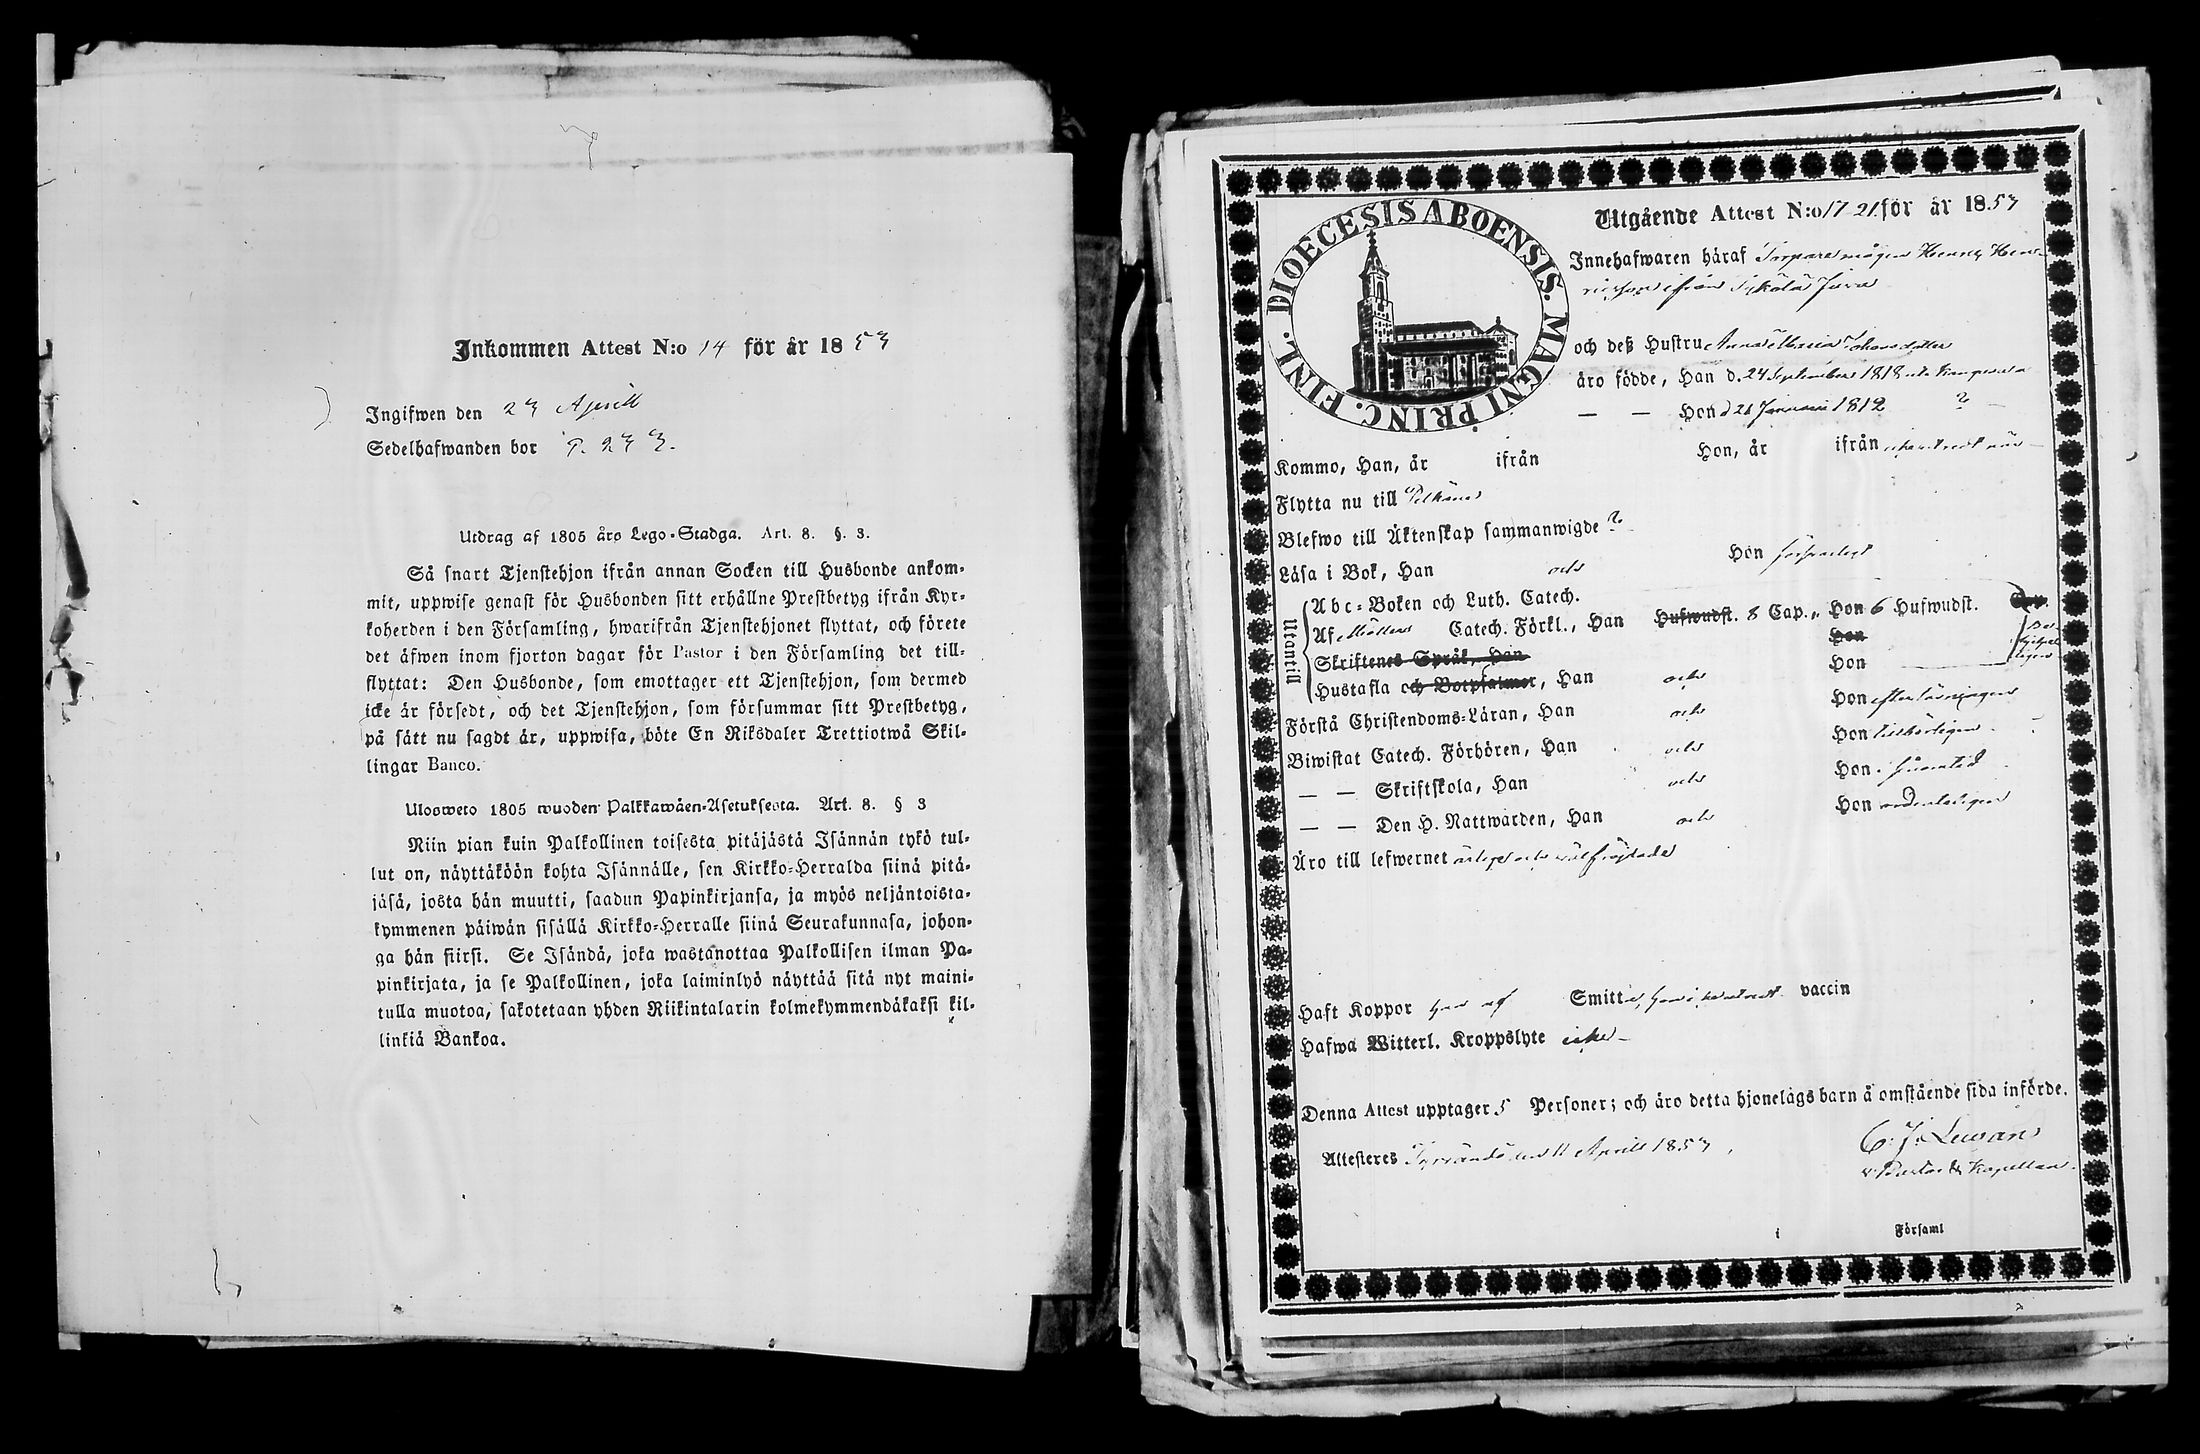 Inkommen Attest N:o 14 för år 1853
Ingifwen den 23 Aprill
Sedelhafwanden bor P. 233.
Utdrag af 1805 års Lego-Stadga. Art. 8. §. 3.
Så snart Tjenstehjon ifrån annan Socken till Husbonde ankom-
mit, uppwise genast för Husbonden sitt erhållne Prestbetyg ifrån Kyr-
koherden i den Församling, hwarifrån Tjenstehjonet flyttat, och förete
det äfwen inom fjorton dagar för Pastor i den Församling det till-
flyttat: Den Husbonde, som emottager ett Tjenstehjon, som dermed
icke är försedt, och det Tjenstehjon, som försummar sitt Prestbetyg,
på sätt nu sagdt är, uppwisa, böte En Riksdaler Trettiotwå Skil-
lingar Banco.
Ulosweto 1805 wuoden Palkkawäen-Asetuksesta. Art. 8. § 3
Niin pian kuin Palkollinen toisesta pitäjästä Isännän tykö tul-
lut on, näyttäköön kohta Isännälle, sen Kirkko-Herralda siinä pitä-
jäsä, josta hän muutti, saadun Papinkirjansa, ja myös neljäntoista-
kymmenen päiwän sisällä Kirkko-Herralle siinä Seurakunnasa, johon-
ga hän siirsi. Se Isändä, joka wastanottaa Palkollisen ilman Pa-
pinkirjata, ja se Palkollinen, joka laiminlyö näyttää sitä nyt maini-
tulla muotoa, sakotetaan yhden Riikintalarin kolmekymmendäkaksi kil-
linkiä Bankoa.
DIOECESIS ABOENSIS. MAGNI PRINC. FINL.
Utgående Attest N:o 17 21. för år 1853
Innehafwaren häraf Torparemågen Henrik Hen-
ricsson ifrån Sykölä
och deß Hustru Anna Maria Johansdotter
äro födde, Han d. 24 September 1818
— — Hon d 21 Januarii 1812 ?
Kommo, Han, år ifrån Hon, år ifrån
Flytta nu till Pelkäne
Blefwo till Äktenskap sammanwigde ?
Läsa i Bok, Han och Hon försvarligt
Utantill
Abc-Boken och Luth. Catech.
Af Möllers Catech. Förkl., Han Hufwudst. 8 Cap., Hon 6 Hufwudst. Cap.
Skriftenes Språk, Han Hon
Hustafla och Botpsalmer, Han och Hon
Förstå Christendoms-Läran, Han och Hon efter
Biwistat Catech. Förhören, Han och Hon
— — Skriftskola, Han och Hon
— — Den H. Nattwarden, Han och Hon ordenteligen
Äro till lefwernet ärlige och wälfrägdade
Haft Koppor Smitt vaccin
Hafwa Witterl. Kroppslyte icke
Denna Attest upptager 5 Personer; och äro detta hjonelags barn å omstående sida införde.
Attesteres Tyrvändö den 11 Aprill 1853
C. J. Lewán
v Pastor & Kapellan.
i Församl